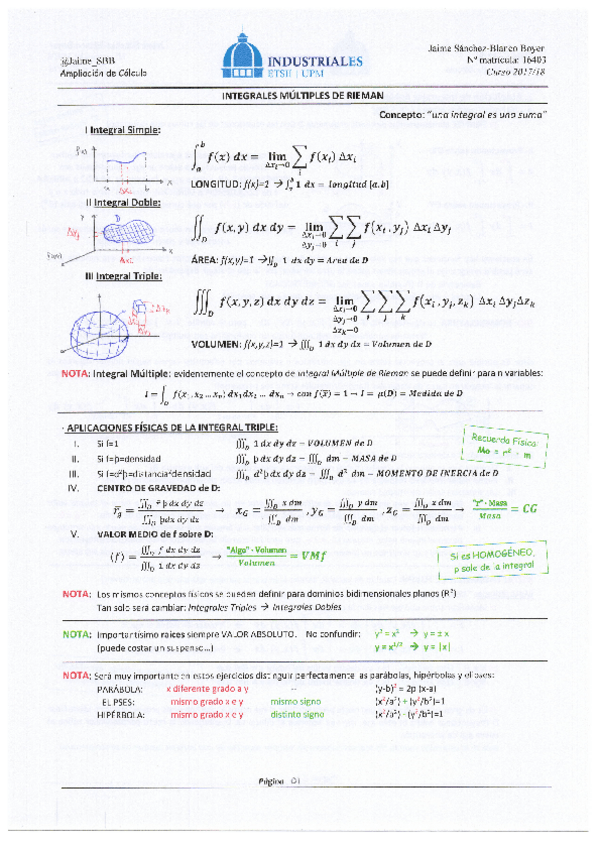 @Jaime_SBB
Ampliación de Cálculo
INDUSTRIALES
ETSII | UPM
Jaime Sánchez-Blanco Boyer
Nº matrícula: 16403
Curso 2017/18
INTEGRALES MÚLTIPLES DE RIEMAN
Concepto: "una integral es una suma"
I Integral Simple:
∫_a^b f(x) dx = lim_{Δx_i→0} ∑_i f(x_i) Δx_i
LONGITUD: f(x)=1 → ∫_a^b 1 dx = longitud [a,b]
II Integral Doble:
∬_D f(x,y) dx dy = lim_{Δx_i→0 Δy_j→0} ∑_i ∑_j f(x_i, y_j) Δx_i Δy_j
ÁREA: f(x,y)=1 → ∬_D 1 dx dy = Area de D
III Integral Triple:
∭_D f(x,y,z) dx dy dz = lim_{Δx_i→0 Δy_j→0 Δz_k→0} ∑_i ∑_j ∑_k f(x_i, y_j, z_k) Δx_i Δy_j Δz_k
VOLUMEN: f(x,y,z)=1 → ∭_D 1 dx dy dz = Volumen de D
NOTA: Integral Múltiple: evidentemente el concepto de Integral Múltiple de Rieman se puede definir para n variables:
I = ∫_D f(x_1, x_2 … x_n) dx_1 dx_2 … dx_n → con f(x̄) = 1 → I = μ(D) = Medida de D
· APLICACIONES FÍSICAS DE LA INTEGRAL TRIPLE:
Recuerda Física:
Mo = r² · m
I. Si f=1 ∭_D 1 dx dy dz = VOLUMEN de D
II. Si f=þ=densidad ∭_D þ dx dy dz = ∭_D dm = MASA de D
III. Si f=d²þ=distancia²densidad ∭_D d²þ dx dy dz = ∭_D d² dm = MOMENTO DE INERCIA de D
IV. CENTRO DE GRAVEDAD de D:
r̄_g = ∭_D r̄ þ dx dy dz / ∭_D þdx dy dz → x_G = ∭_D x dm / ∭_D dm , y_G = ∭_D y dm / ∭_D dm , z_G = ∭_D z dm / ∭_D dm → "r" · Masa / Masa = CG
V. VALOR MEDIO de f sobre D:
⟨f⟩ = ∭_D f dx dy dz / ∭_D 1 dx dy dz → "Algo" · Volumen / Volumen = VMf
Si es HOMOGÉNEO,
þ sale de la integral
NOTA: Los mismos conceptos físicos se pueden definir para dominios bidimensionales planos (R²)
Tan solo será cambiar: Integrales Triples → Integrales Dobles
NOTA: Importantísimo raíces siempre VALOR ABSOLUTO. No confundir: y² = x² → y = ± x
(puede costar un suspenso…) y = x^{2/2} → y = |x|
NOTA: Será muy importante en estos ejercicios distinguir perfectamente las parábolas, hipérbolas y elipses:
PARÁBOLA: x diferente grado a y -- (y-b)² = 2p (x-a)
ELIPSES: mismo grado x e y mismo signo (x²/a²) + (y²/b²)=1
HIPÉRBOLA: mismo grado x e y distinto signo (x²/a²) - (y²/b²)=1
Página 01